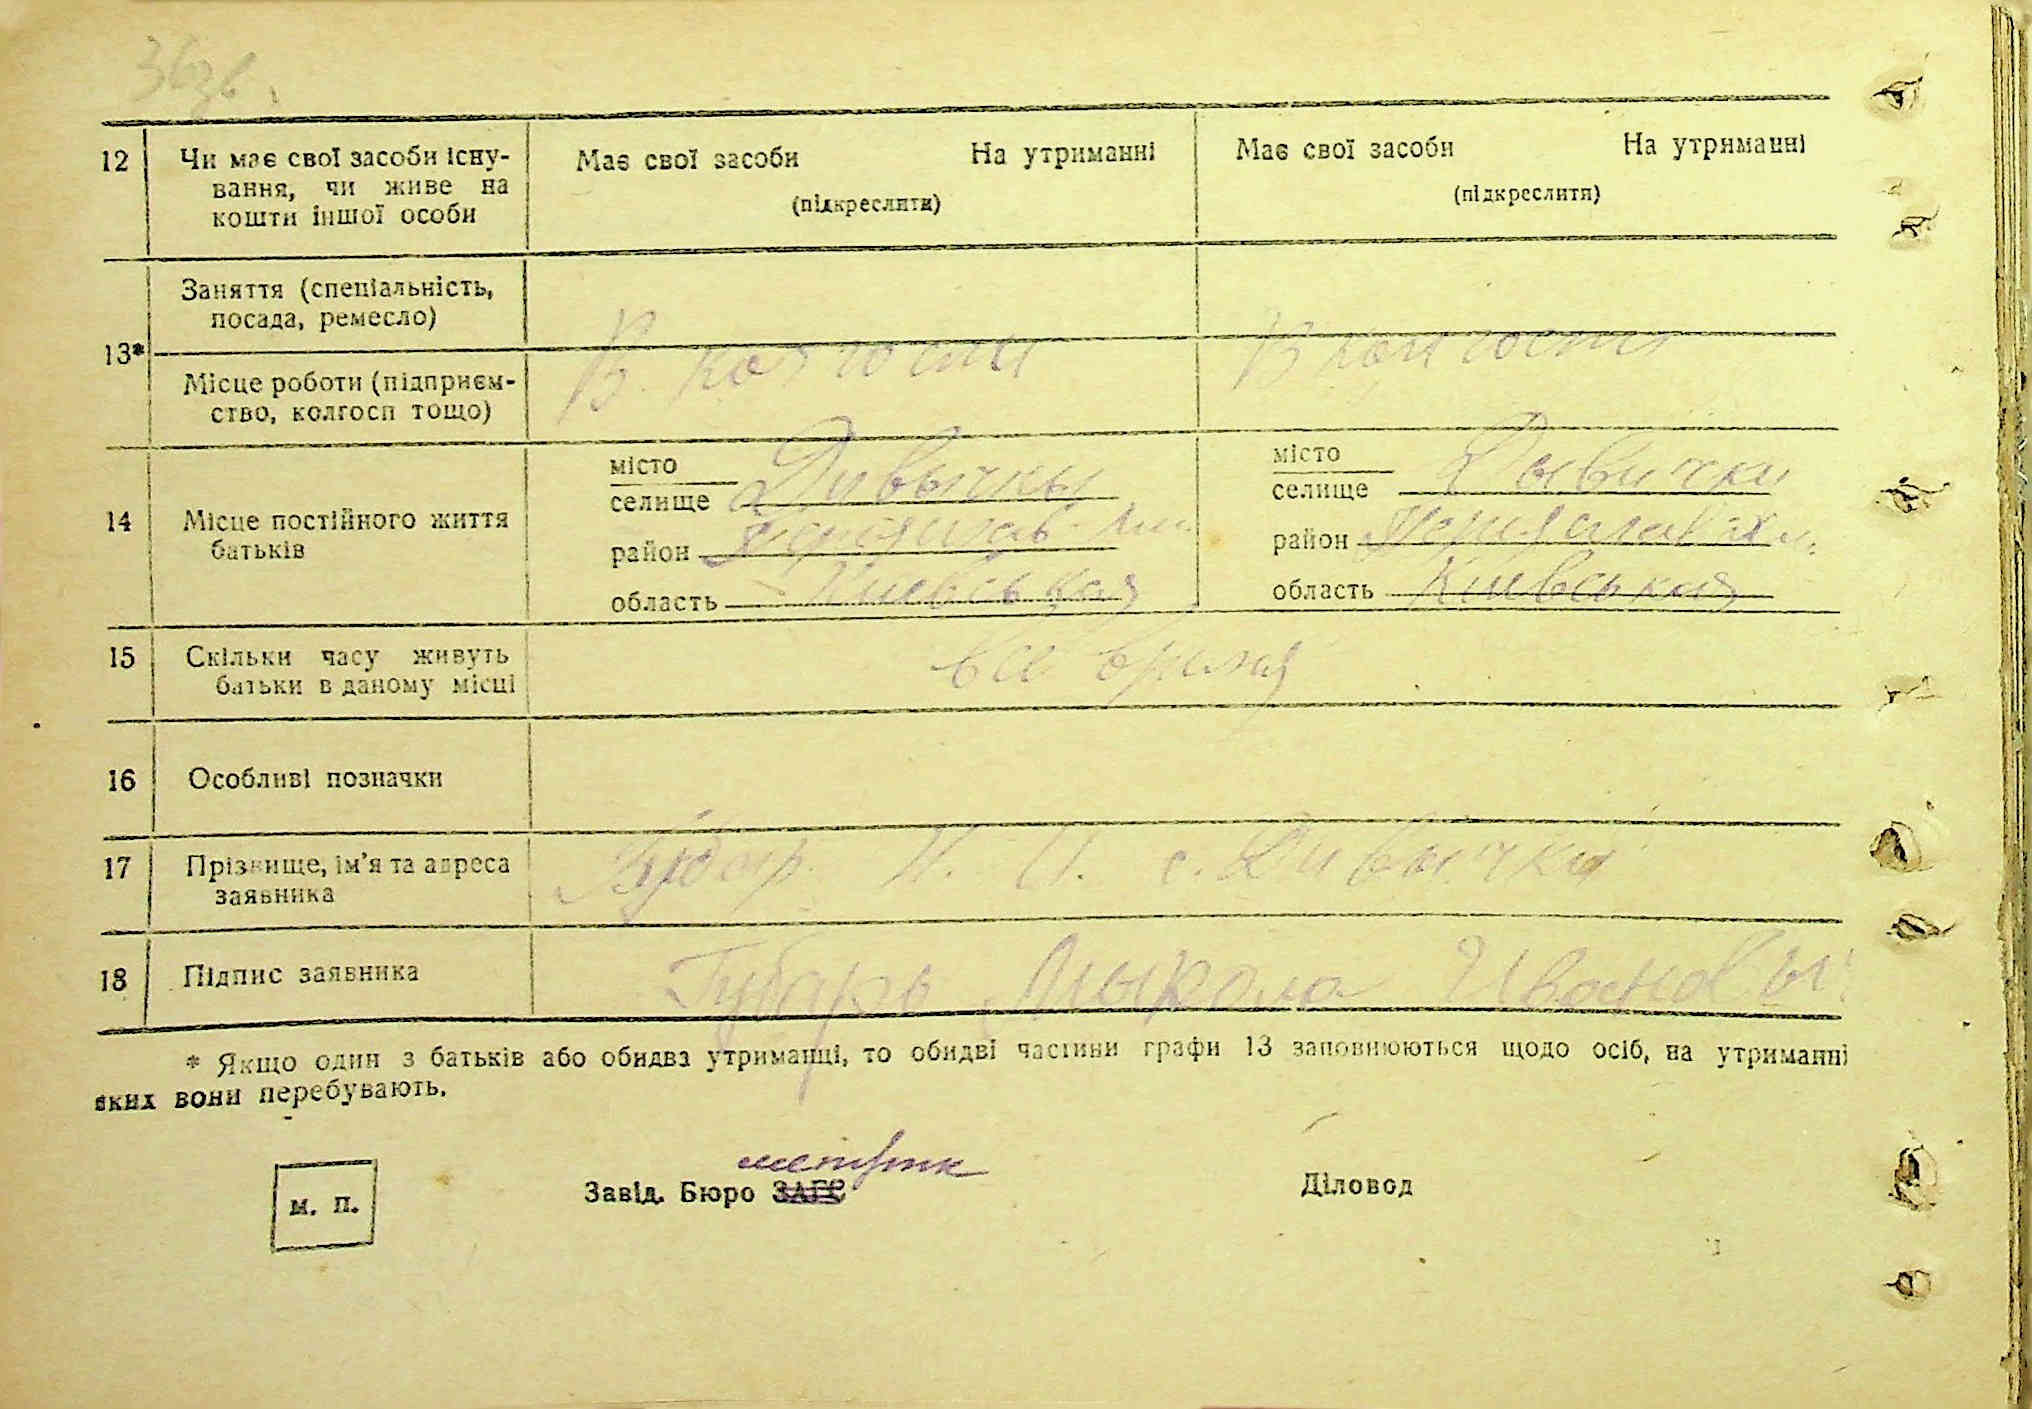 36зв.
12 Чи має свої засоби існу- Має свої засоби На утриманні Має свої засоби На утриманні
вання, чи живе на (підкреслити) (підкреслити)
кошти іншої особи
Заняття (спеціальність,
посада, ремесло)
13*
В колгоспи В колгоспи
Місце роботи (підприєм-
ство, колгосп тощо)
місто місто
селище Дивычкы селище Дывички
14 Місце постійного життя
батьків
район район
область Киевськая область Киевськая
15 Скільки часу живуть все время
батьки в даному місці
16 Особливі позначки
17 Прізвище, ім'я та адреса Губар. Н. И. с. Дивычки
заявника
18 Підпис заявника Губарь Мыкола Ивановы
* Якщо один з батьків або обидва утриманці, то обидві частини графи 13 заповнюються щодо осіб, на утриманні
яких вони перебувають.
метрик
м. п. Завід. Бюро ЗАГС Діловод